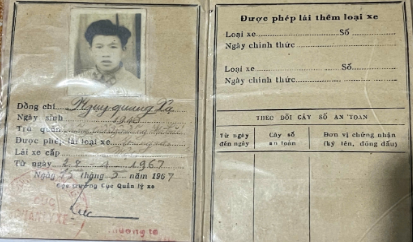 Đồng chí Nguy quang Xã
Ngày sinh 1943
Trú quán
Được phép lái loại xe
Lái xe cấp
Từ ngày 1967
Ngày 25 tháng 5 năm 1967
Cục trưởng Cục Quản lý xe
CỤC
Thượng tá
Được phép lái thêm loại xe
Loại xe Số
Ngày chính thức
Loại xe Số
Ngày chính thức
THEO DÕI CÂY SỐ AN TOÀN
Từ ngày đến ngày
Cây số an toàn
Đơn vị chứng nhận
(ký tên, đóng dấu)